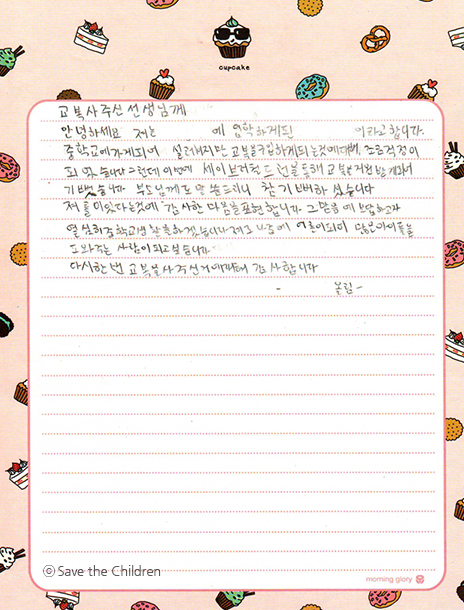 cupcake
교복사주신 선생님께
안녕하세요 저는 에 입학하게된 이라고 합니다.
중학교에가게되어 설레지만 교복을구입하게되는것에대해 조금걱정이
되었습니다 그런데 이번에 세이브더칠드런을통해 교복을지원받게되서
기뻤습니다 부모님께도 말씀드리니 참 기뻐하셨습니다
저를 감사한 마음을표현합니다. 그마음에 보답하고자
열심히 중학교생활을하겠습니다 저도 나중에 어른이되어 많은아이들을
도와주는 사람이되고싶습니다
다시한번 교복을사주신거에대해 감사합니다
- 올림-
ⓒ Save the Children
morning glory